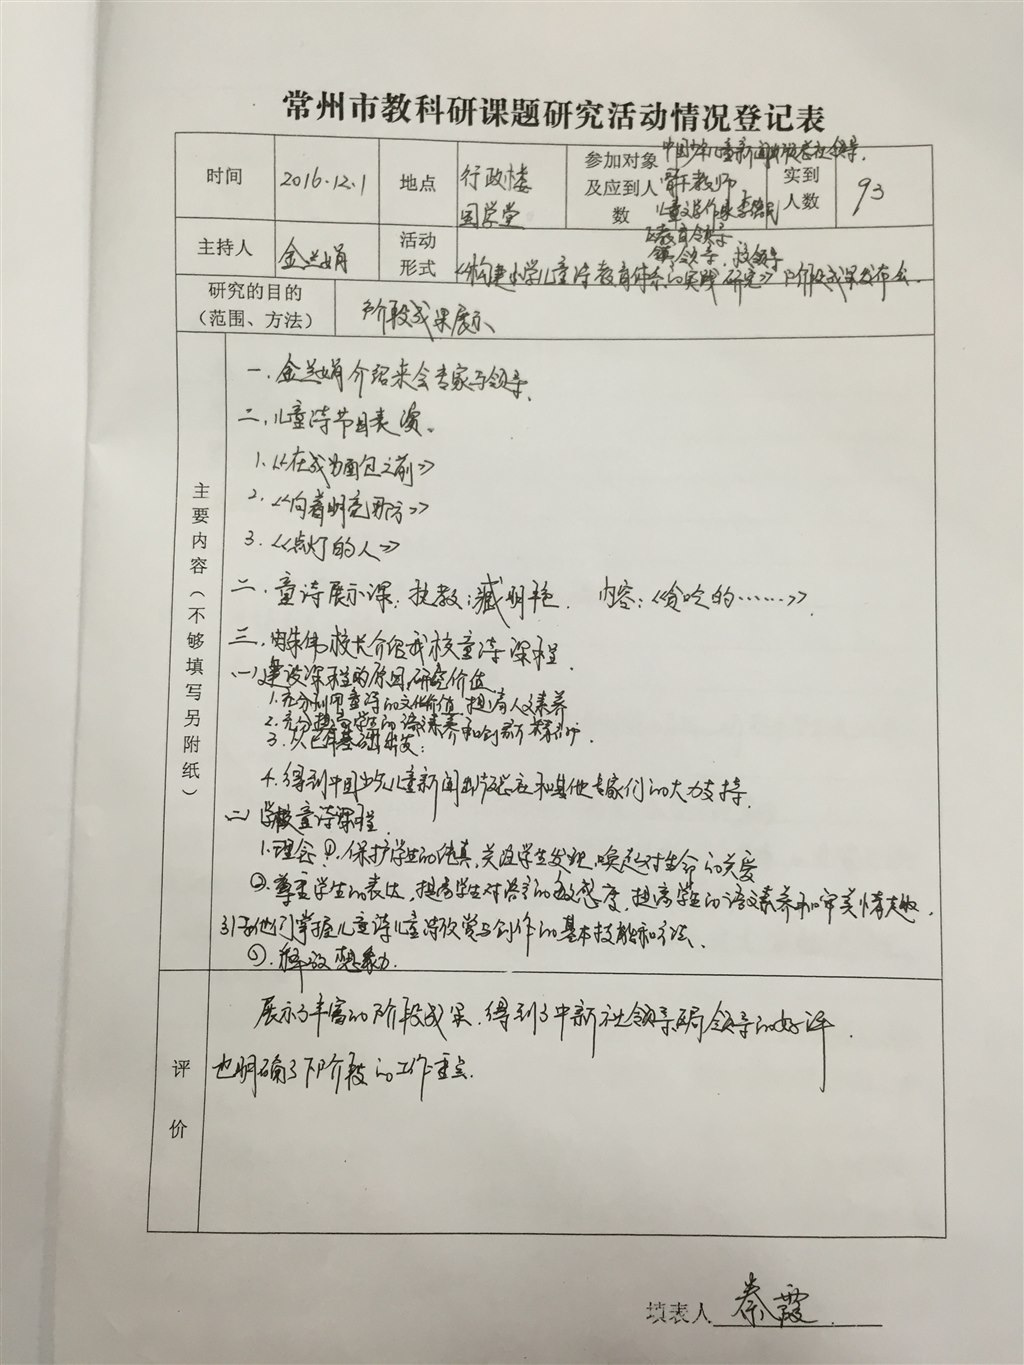 常州市教科研课题研究活动情况登记表
时间 2016.12.1 地点 行政楼 国学堂 参加对象及应到人数 中国少年儿童新闻出版总社领导、
骨干教师
儿童文学作家李德民
区教育领导
镇领导、校领导
实到人数 93
主持人 金兰娟 活动形式 《构建小学儿童诗教育体系的实践研究》阶段成果发布会.
研究的目的
（范围、方法） 阶段成果展示
主要内容（不够填写另附纸）
一. 金兰娟介绍来会专家与领导.
二. 儿童诗节目表演。
1.《在成为面包之前》
2.《向着明亮那方》
3.《点灯的人》
二. 童诗展示课: 执教: 臧明艳. 内容:《贪吃的……》.
三. 由朱伟校长介绍我校童诗课程.
(一) 建设课程的原因, 研究价值
1. 充分利用童诗的文化价值 提高人文素养
2. 充分提高学生的语文素养和创新精神.
3. 从已有基础出发:
4. 得到中国少年儿童新闻出版总社和其他专家们的大力支持.
(二) 学校童诗课程.
1. 理念: ①. 保护学生的纯真, 关注学生发现, 唤起对生命的关爱
②. 尊重学生的表达, 提高学生对语言的敏感度, 提高学生的语文素养和审美情趣.
掌握儿童诗儿童诗欣赏与创作的基本技能和方法.
释放想象力.
评价
展示了丰富的阶段成果. 得到了中新社领导局领导的好评.
也明确了下阶段的工作重点.
填表人 秦霞